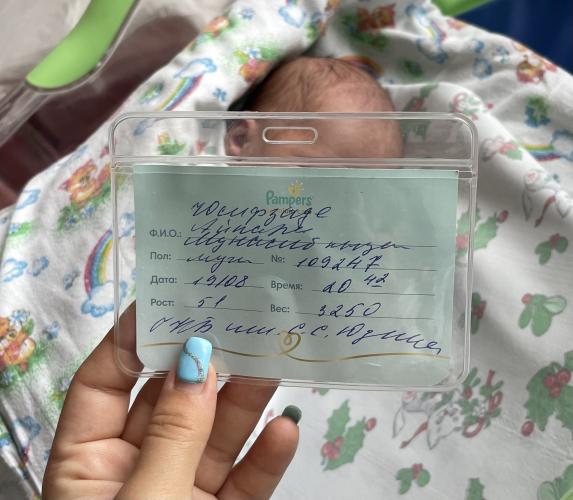 Pampers
Юсифзаде
Айтадж
Ф.И.О.: Мунасиб кызы
Пол: муж №: 109247
Дата: 19/08 Время: 20 42
Рост: 51 Вес: 3250
ГКБ им. С.С. Юдина